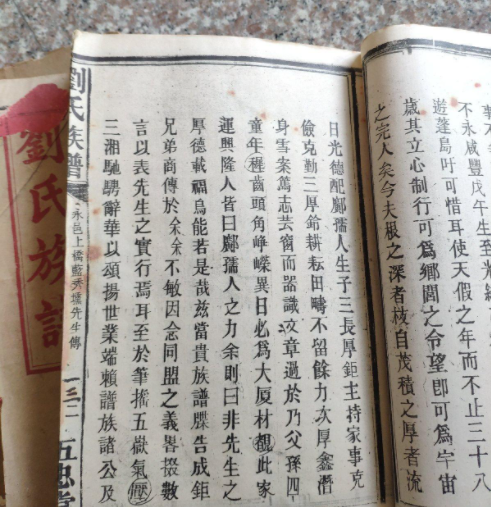 不永咸豐戊午生至光緒
遊蓬島吁可惜耳使天假之年而不止三十八
歲其立心制行可為鄉閭之令望即可為宇宙
之完人矣今夫根之深者枝自茂積之厚者流
日光德配鄺孺人生子三長厚鉅主持家事克
儉克勤三厚鈴耕耘田疇不留餘力次厚鑫潛
身雪案篤志芸窗而器識文章過於乃父孫四
童年穉齒頭角崢嶸異日必為大厦材覩此家
運興隆人皆曰鄺孺人之力余則曰非先生之
厚德載福烏能若是哉兹當貴族譜牒告成鉅
兄弟商傳於余余不敏因念同盟之義畧掇數
言以表先生之實行焉耳至於筆搖五嶽氣壓
三湘馳騁辭華以頌揚世業端賴譜族諸公及
劉氏族譜
永邑上橋藍秀墟先生傳
一三二
五忠堂
劉氏族譜